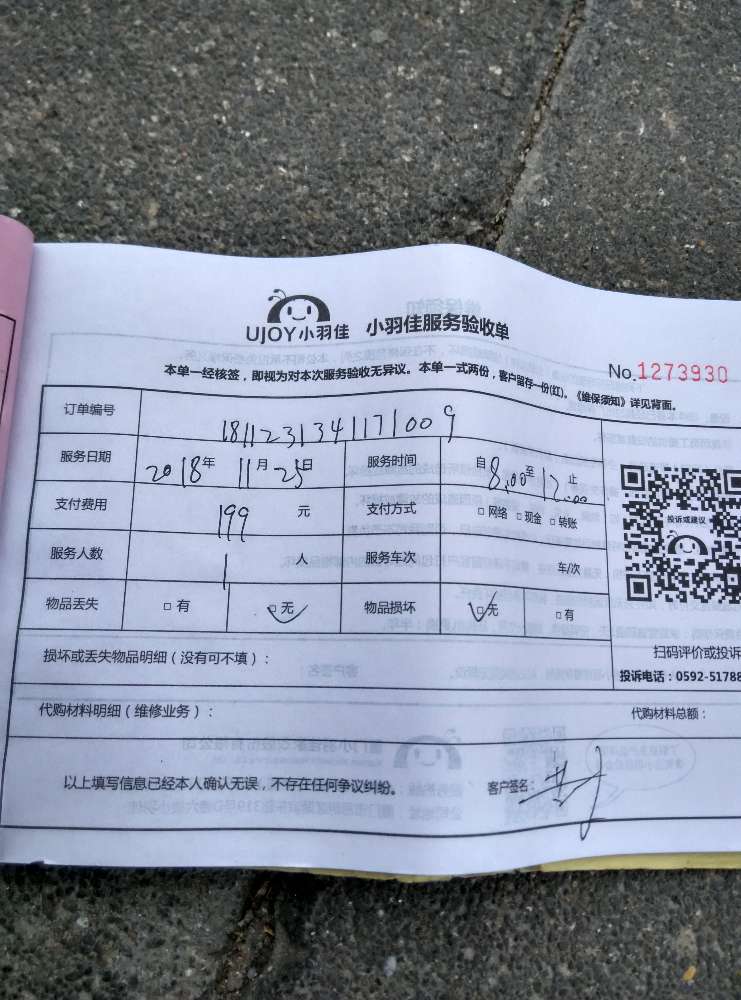 UJOY小羽佳 小羽佳服务验收单
No.1273930
本单一经核签，即视为对本次服务验收无异议。本单一式两份，客户留存一份(红)。《维保须知》详见背面。
订单编号 1811231341171009
服务日期 2018年 11月25日 服务时间 自8:00至12:00止
支付费用 199 元 支付方式 □网络 □现金 □转账
投诉或建议
服务人数 1 人 服务车次 车/次
物品丢失 □有 □无 物品损坏 □无 □有
损坏或丢失物品明细（没有可不填）：
扫码评价或投诉
投诉电话：0592-51788
代购材料明细（维修业务）： 代购材料总额：
以上填写信息已经本人确认无误，不存在任何争议纠纷。 客户签名：